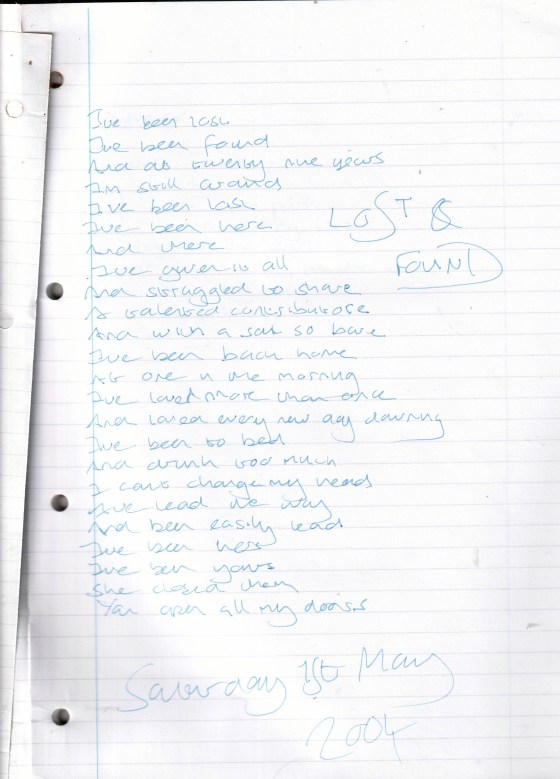 I've been lost
I've been found
And at twenty nine years
I'm still around
I've been last
I've been here
And there
I've given it all
And struggled to share
A talented contributore
And with a soul so bare
I've been back home
At one in the morning
I've loved more than once
And loved every new day dawning
I've been to bed
And drunk too much
I cant change my heads
I've lead the way
And been easily lead
I've been hers
I've been yours
She closed them
You open all my doors
LOST &
FOUND
Saturday 1st May
2004